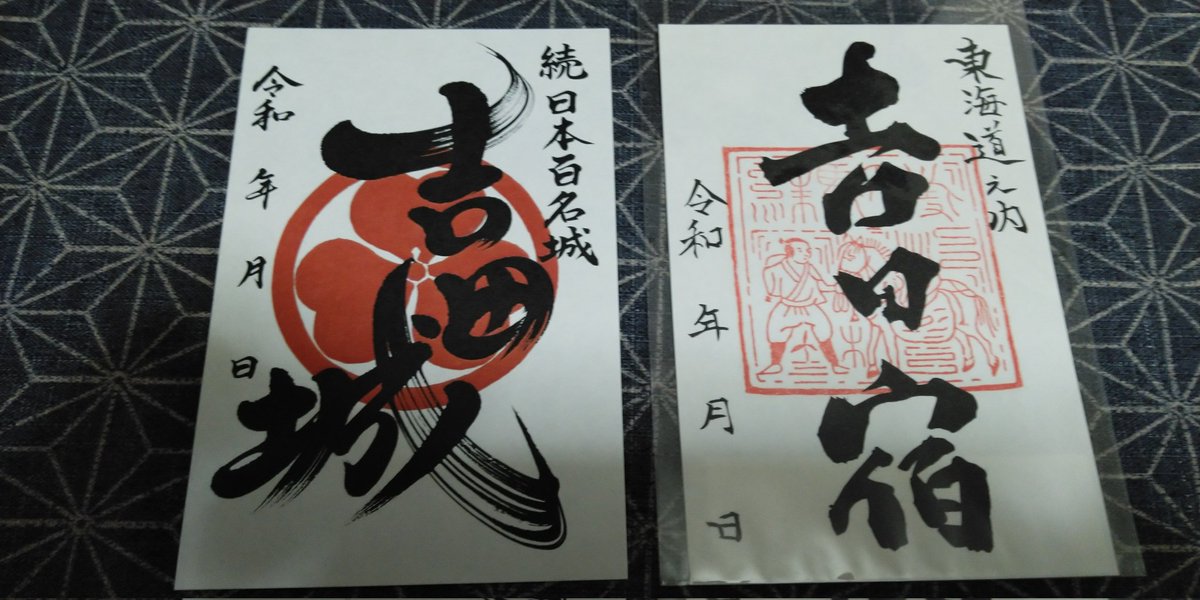 続日本百名城
吉田城
令和 年 月 日
東海道之内
吉田宿
令和 年 月 日